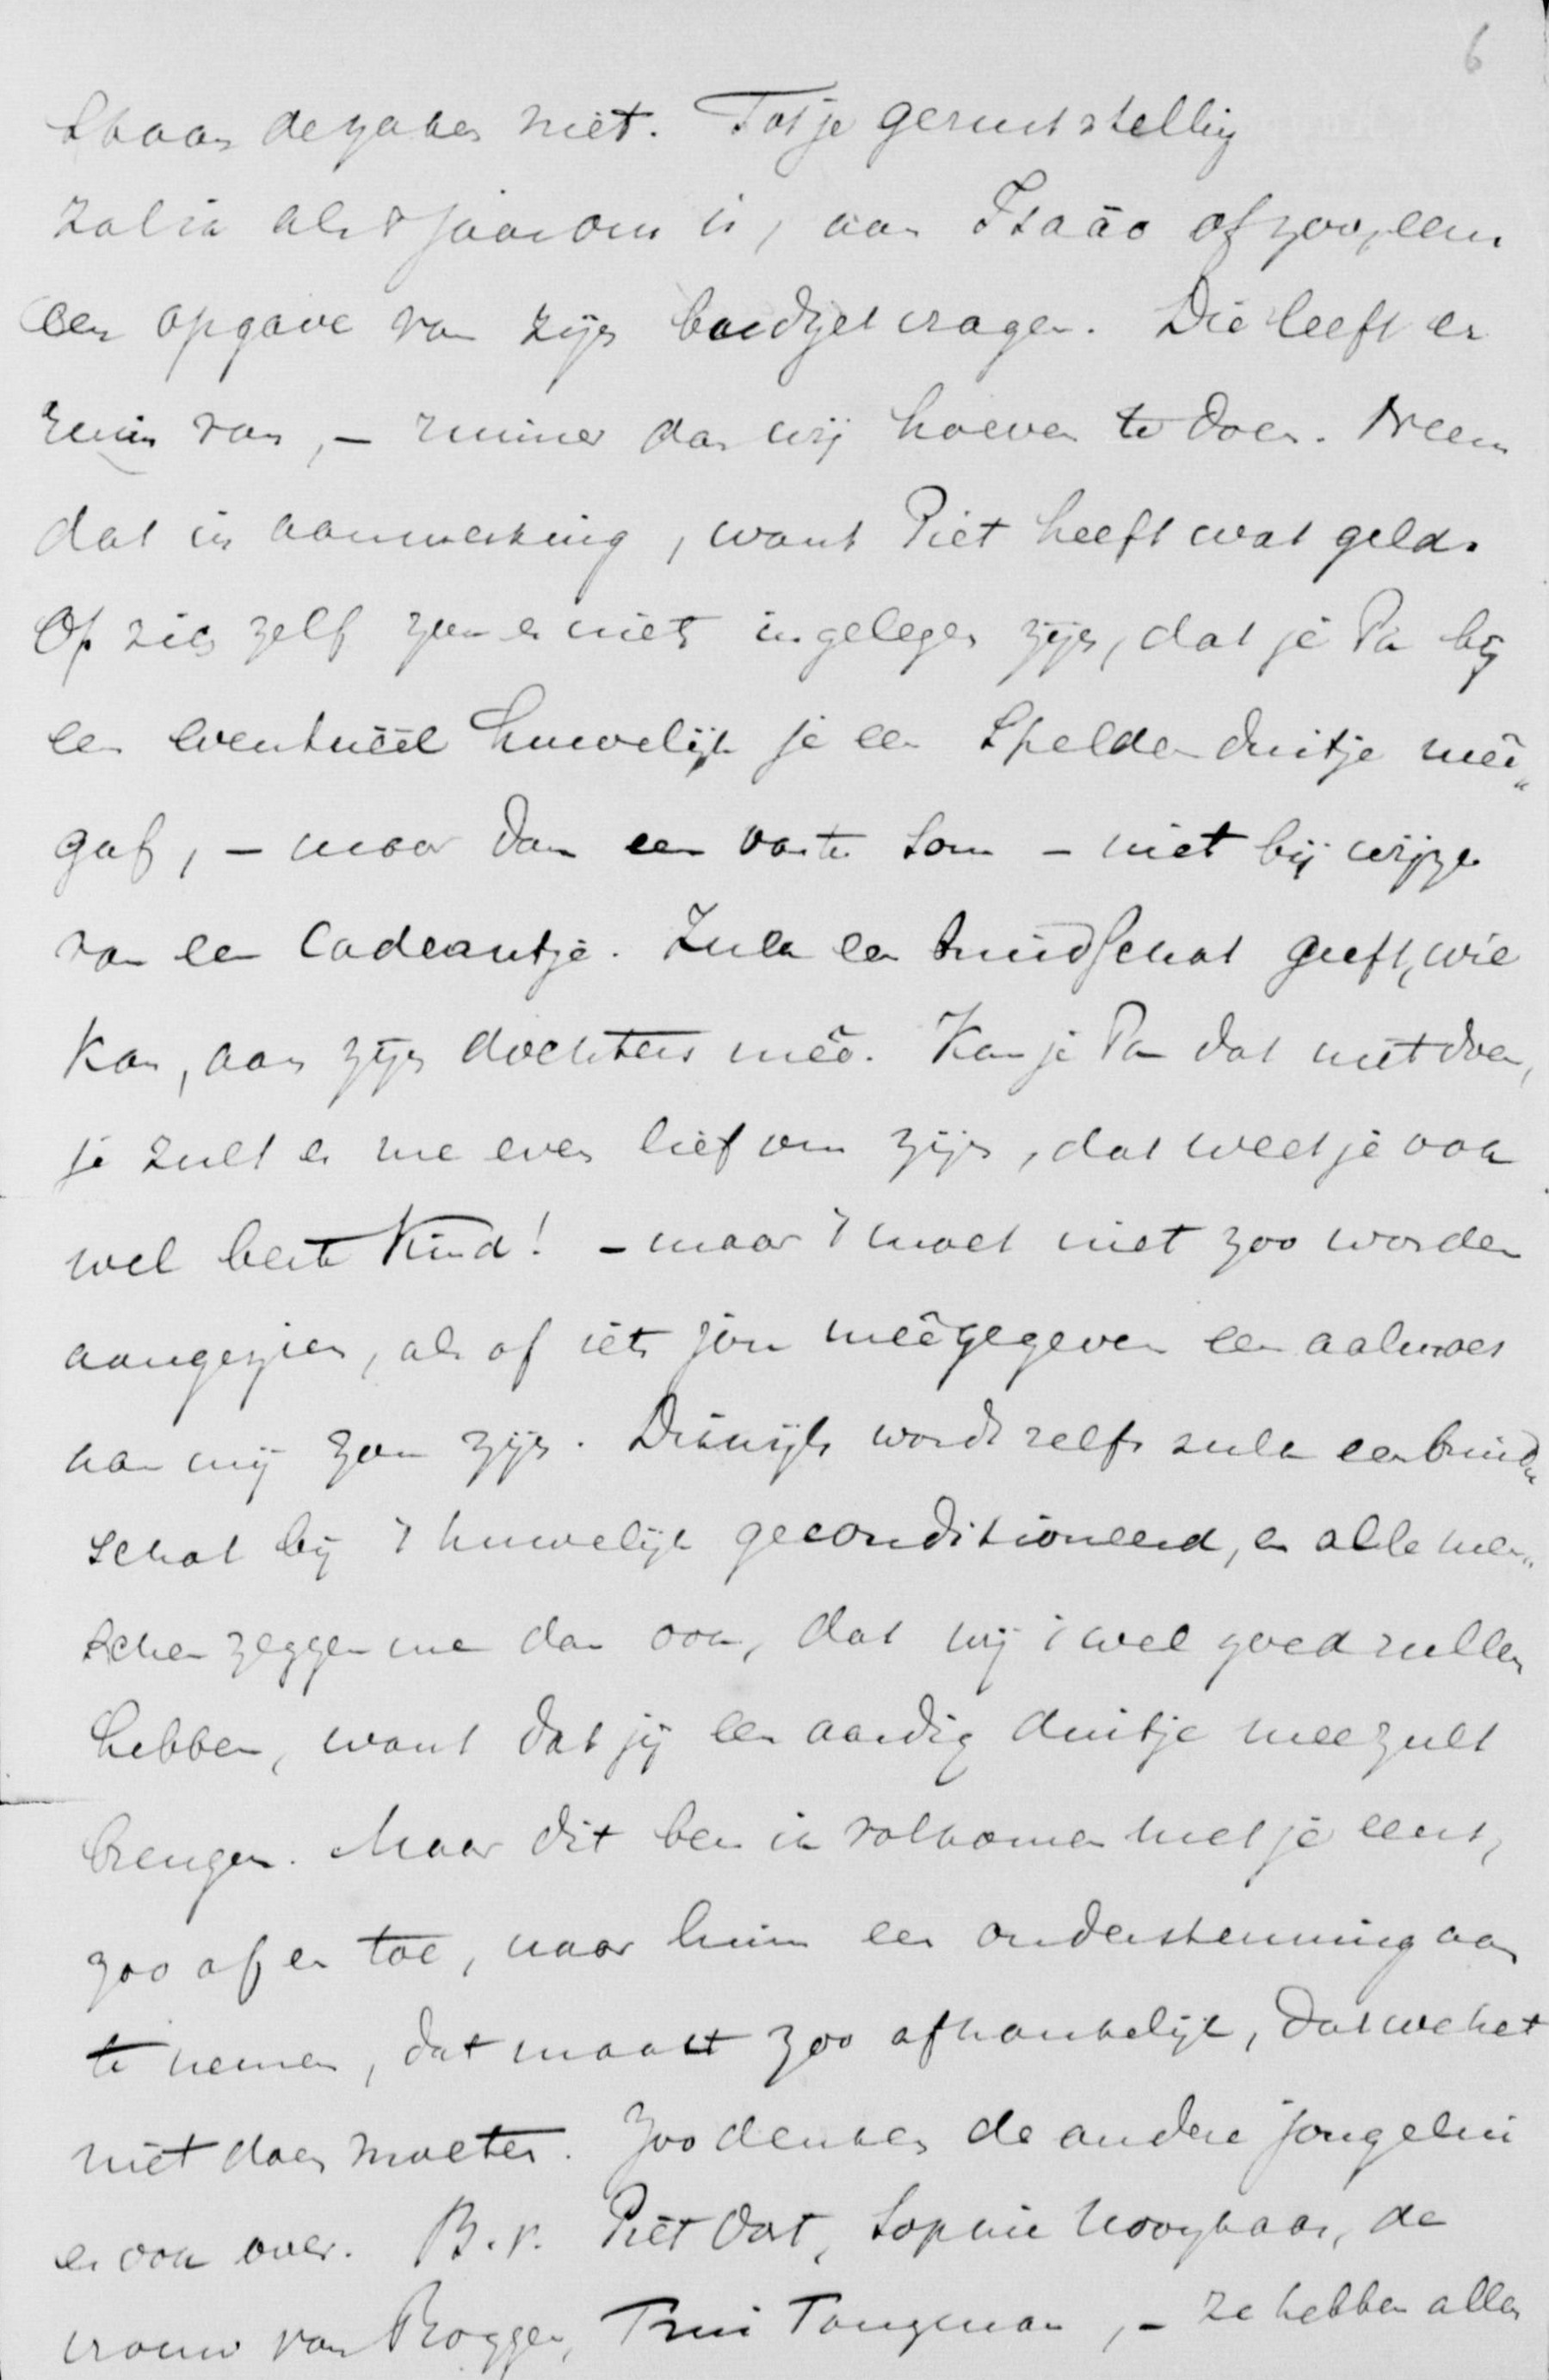 6
staan de zaken niet. Tot je geruststelling
zal ik als 't jaar om is, aan Isaäc of zoo, eens
een opgave van zijn budget vragen. Die leeft er
ruim van, – ruimer dan wij hoeven te doen. Neem
dat in aanmerking, want Piet heeft wat geld.
Op zich zelf zou er niets in gelegen zijn, dat je Pa bij
een eventuëel huwelijk je een speldenduitje meê„
gaf, – maar dan een vaste som – niet bij wijze
van een cadeautje. Zulk een bruidschat geeft, wie
kan, aan zijn dochters meê. Kan je Pa dat niet doen,
je zult er me even lief om zijn, dat weet je ook
wel beste kind! – maar 't moet niet zoo worden
aangezien, als of iets jou meêgegeven een aalmoes
aan mij zou zijn. Dikwijls wordt zelfs zulk een bruid„
schat bij 't huwelijk geconditioneerd, en alle men„
schen zeggen me dan ook, dat wij 't wel goed zullen
hebben, want dat jij een aardig duitje mee zult
brengen. Maar dit ben ik volkomen met je eens,
zoo af en toe, naar luim een ondersteuning aan
te nemen, dat maakt zoo afhankelijk, dat we het
niet doen moeten. Zoo denken de andere jongelui
er ook over. B.v. Piet Oort, Sophie Hooykaas, de
vrouw van Rogge, Trui Tangman, – ze hebben allen